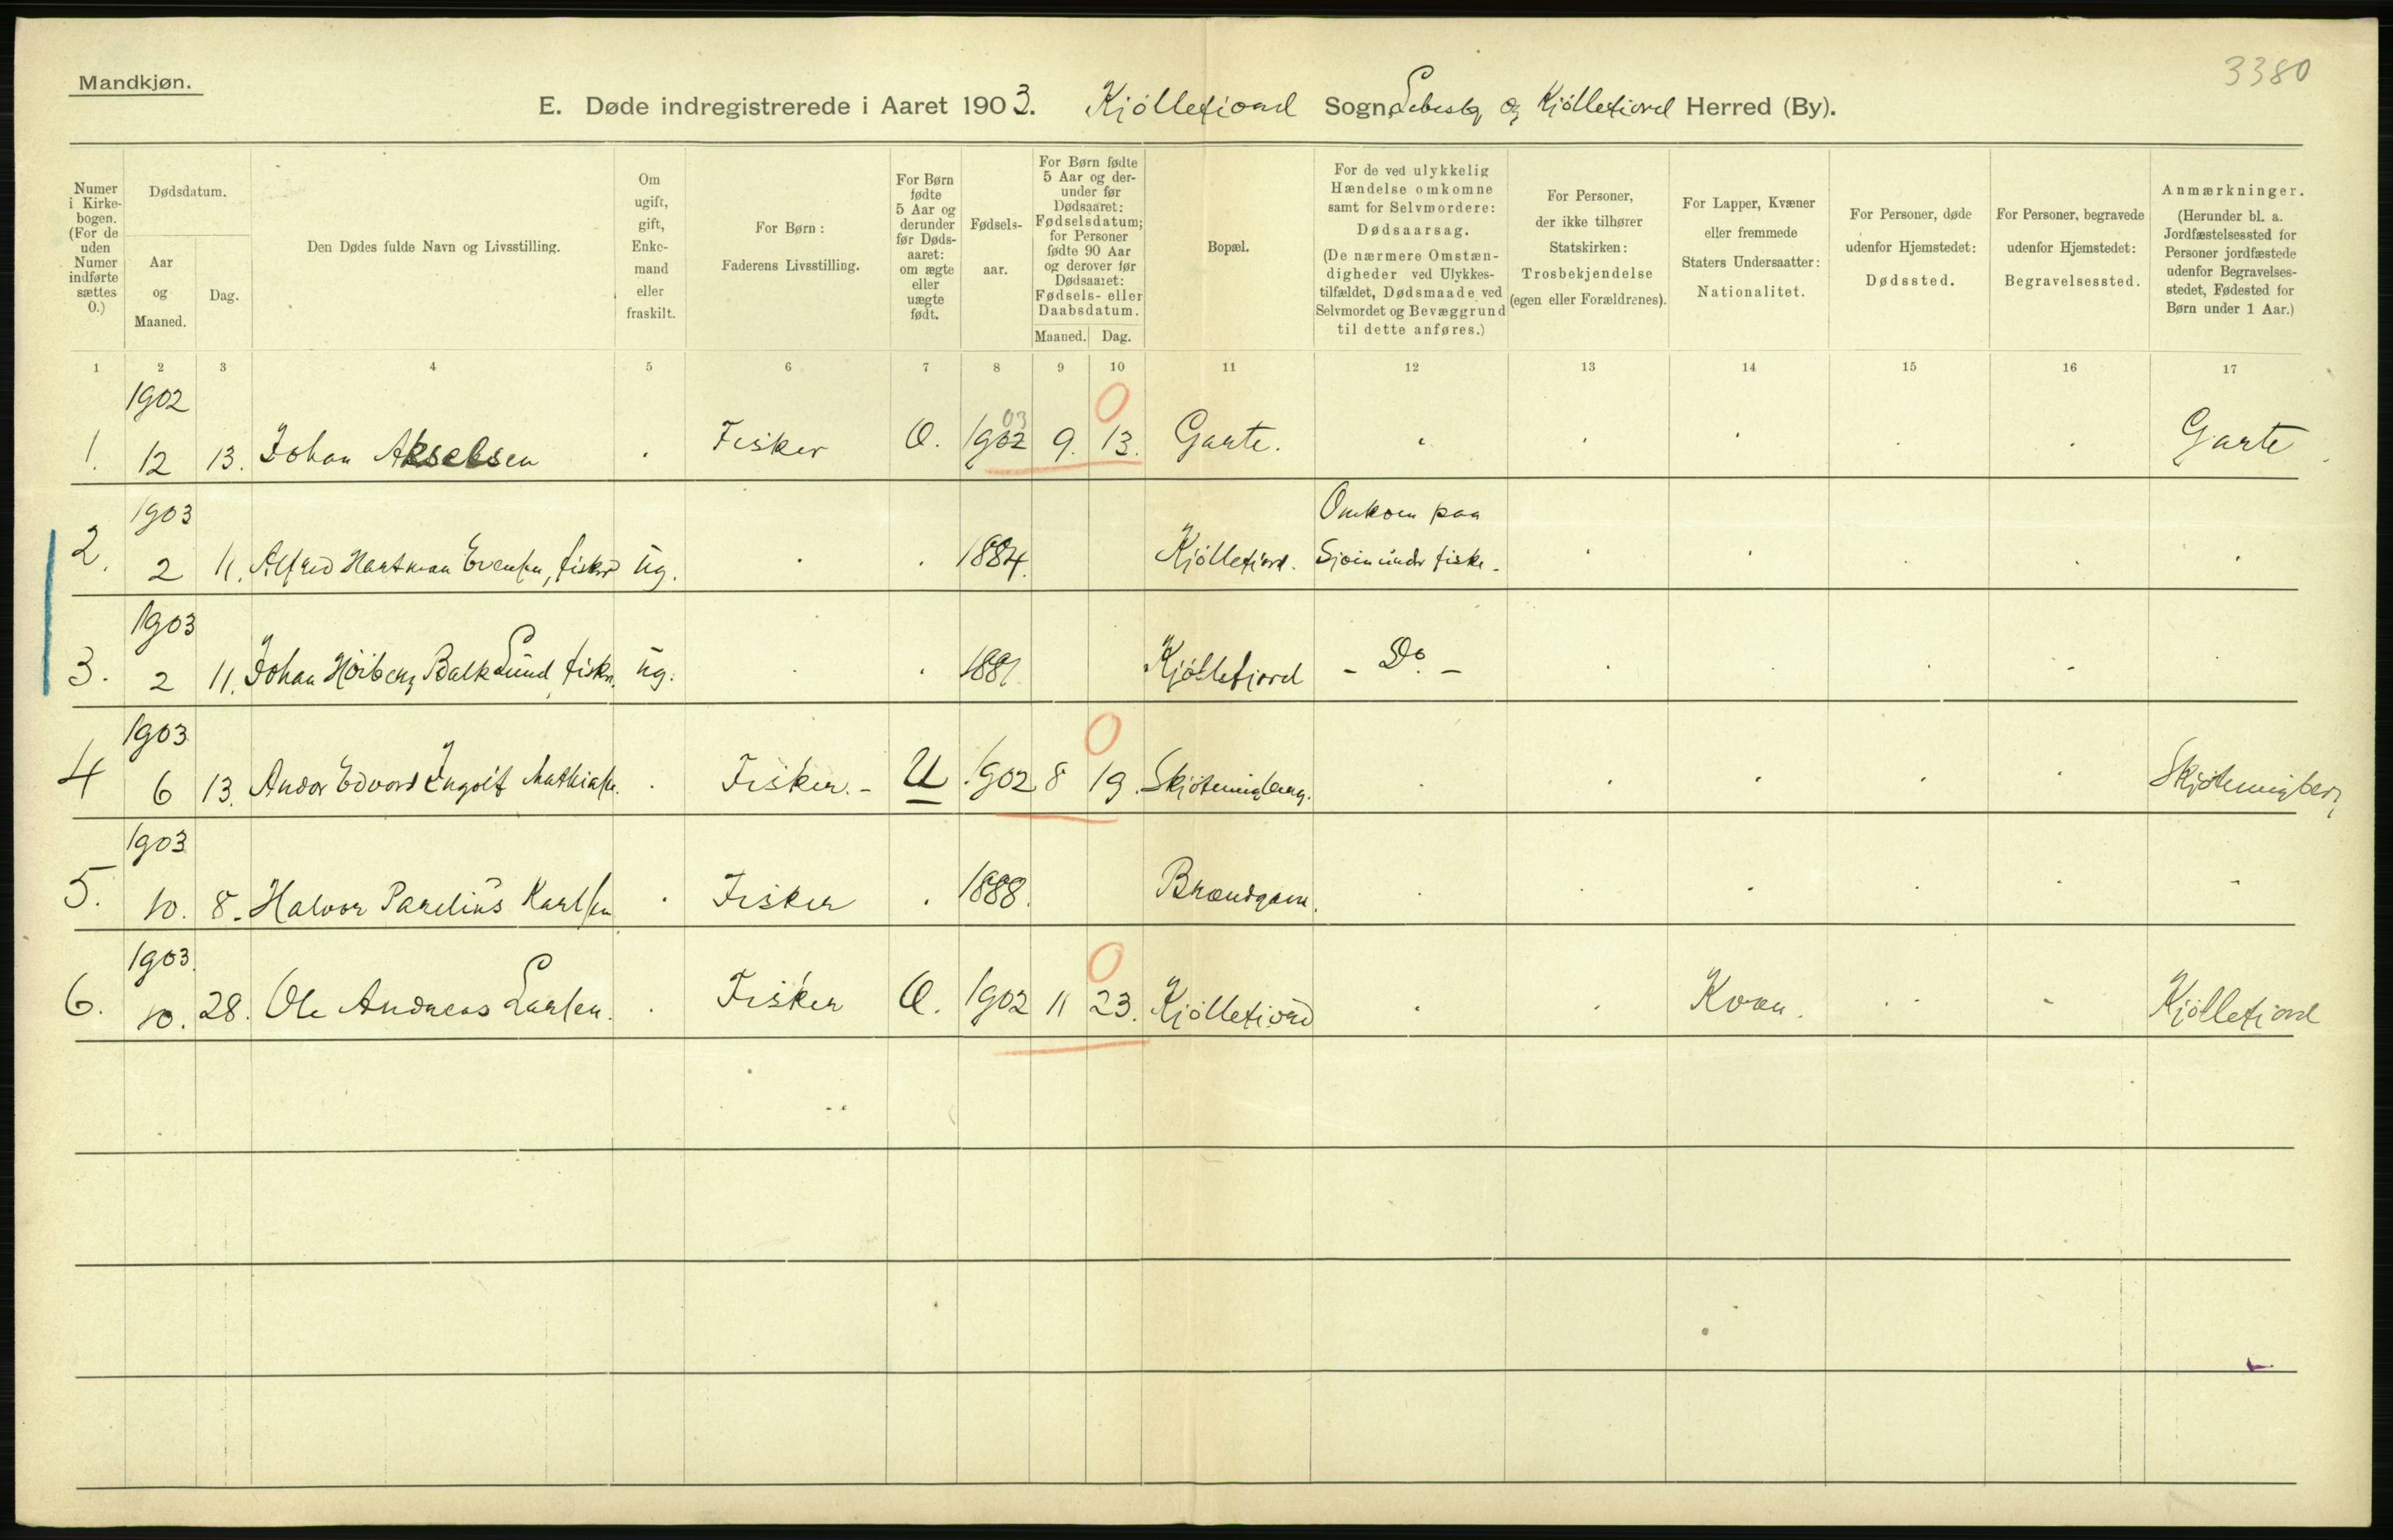 Mandkjøn.
3380
E. Døde indregistrerede i Aaret 1903. Kjöllefiord Sogn, Lebesby og Kjöllefiord Herred (By).
Numer i Kirke-bogen. (For de uden Numer indførte sættes 0.)
Dødsdatum.
Aar og Maaned.
Dag.
Den Dødes fulde Navn og Livsstilling.
Om ugift, gift, Enke-mand eller fraskilt.
For Børn: Faderens Livsstilling.
For Børn fødte 5 Aar og derunder før Døds-aaret: om ægte eller uægte født.
Fødsels-aar.
For Børn fødte 5 Aar og der-under før Dødsaaret: Fødselsdatum; for Personer fødte 90 Aar og derover før Dødsaaret: Fødsels- eller Daabsdatum.
Maaned. Dag.
Bopæl.
For de ved ulykkelig Hændelse omkomne samt for Selvmordere: Dødsaarsag. (De nærmere Omstæn-digheder ved Ulykkes-tilfældet, Dødsmaade ved Selvmordet og Bevæggrund til dette anføres.)
For Personer, der ikke tilhører Statskirken: Trosbekjendelse (egen eller Forældrenes).
For Lapper, Kvæner eller fremmede Staters Undersaatter: Nationalitet.
For Personer, døde udenfor Hjemstedet: Dødssted.
For Personer, begravede udenfor Hjemstedet: Begravelsessted.
Anmærkninger. (Herunder bl. a. Jordfæstelsessted for Personer jordfæstede udenfor Begravelses-stedet, Fødested for Børn under 1 Aar.)
1 2 3 4 5 6 7 8 9 10 11 12 13 14 15 16 17
1902 03 0
1. 12 13. Johan Akselsen Fisker O. 1902 9. 13. Garte. Garte
1903 Omkom paa
2. 2 11. Alfred Hartman Evensen, fisker ug. 1884. Kjöllefiord. Sjöen under fiske.
1903
3. 2 11. Johan Höiberg Balk Lund fisker. ug. 1881 Kjöllefjord - Do. -
1903 0
4 6 13. Andor Edvard Ingolf Mathiasen. Fisker. - U 1902 8 19. Skjötningberg. Skjötningberg
1903
5. 10. 8. Halvor Parelius Karlsen Fisker 1888.
1903. 0
6. 10. 28. Ole Andreas Larsen. Fisker O. 1902 11 23. Kjöllefiord Kvæn. Kjöllefiord